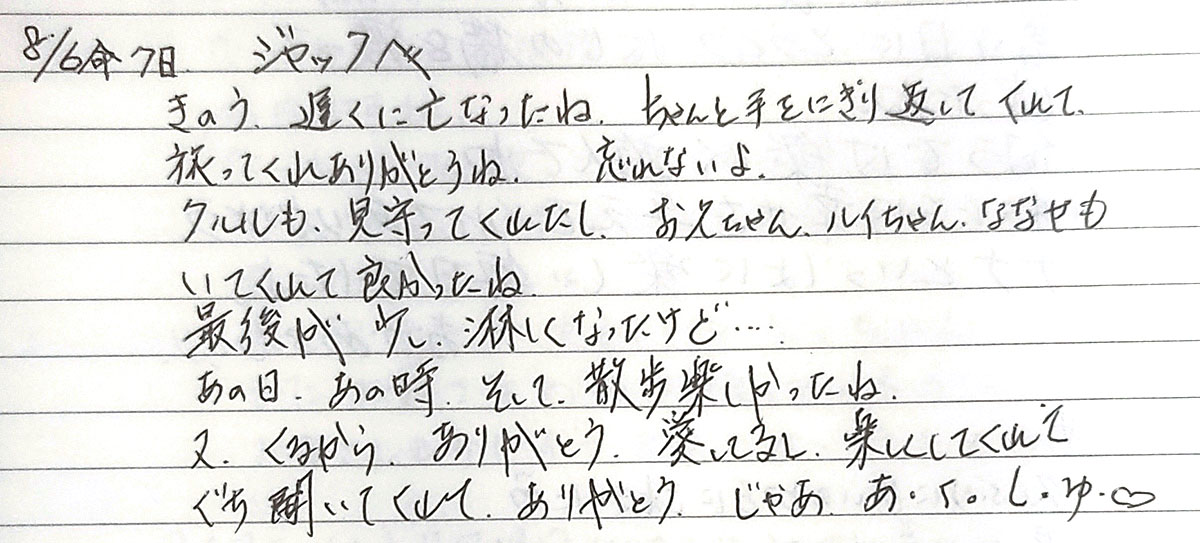 8/6命7日 ジャックへ
きのう、遅くに亡なったね、ちゃんと手をにぎり返してくれて、
旅ってくれありがとうね、忘れないよ、
クルルも、見守ってくれたし、お兄ちゃん、ルイちゃん、ななせも
いてくれて良かったね
最後が少し、淋しくなったけど‥‥
あの日、あの時、そして、散歩楽しかったね、
又、くるから、ありがとう、愛してるし、楽しくしてくれて
ぐち聞いてくれて、ありがとう、じゃあ、あ・い・し・ゆ・♡